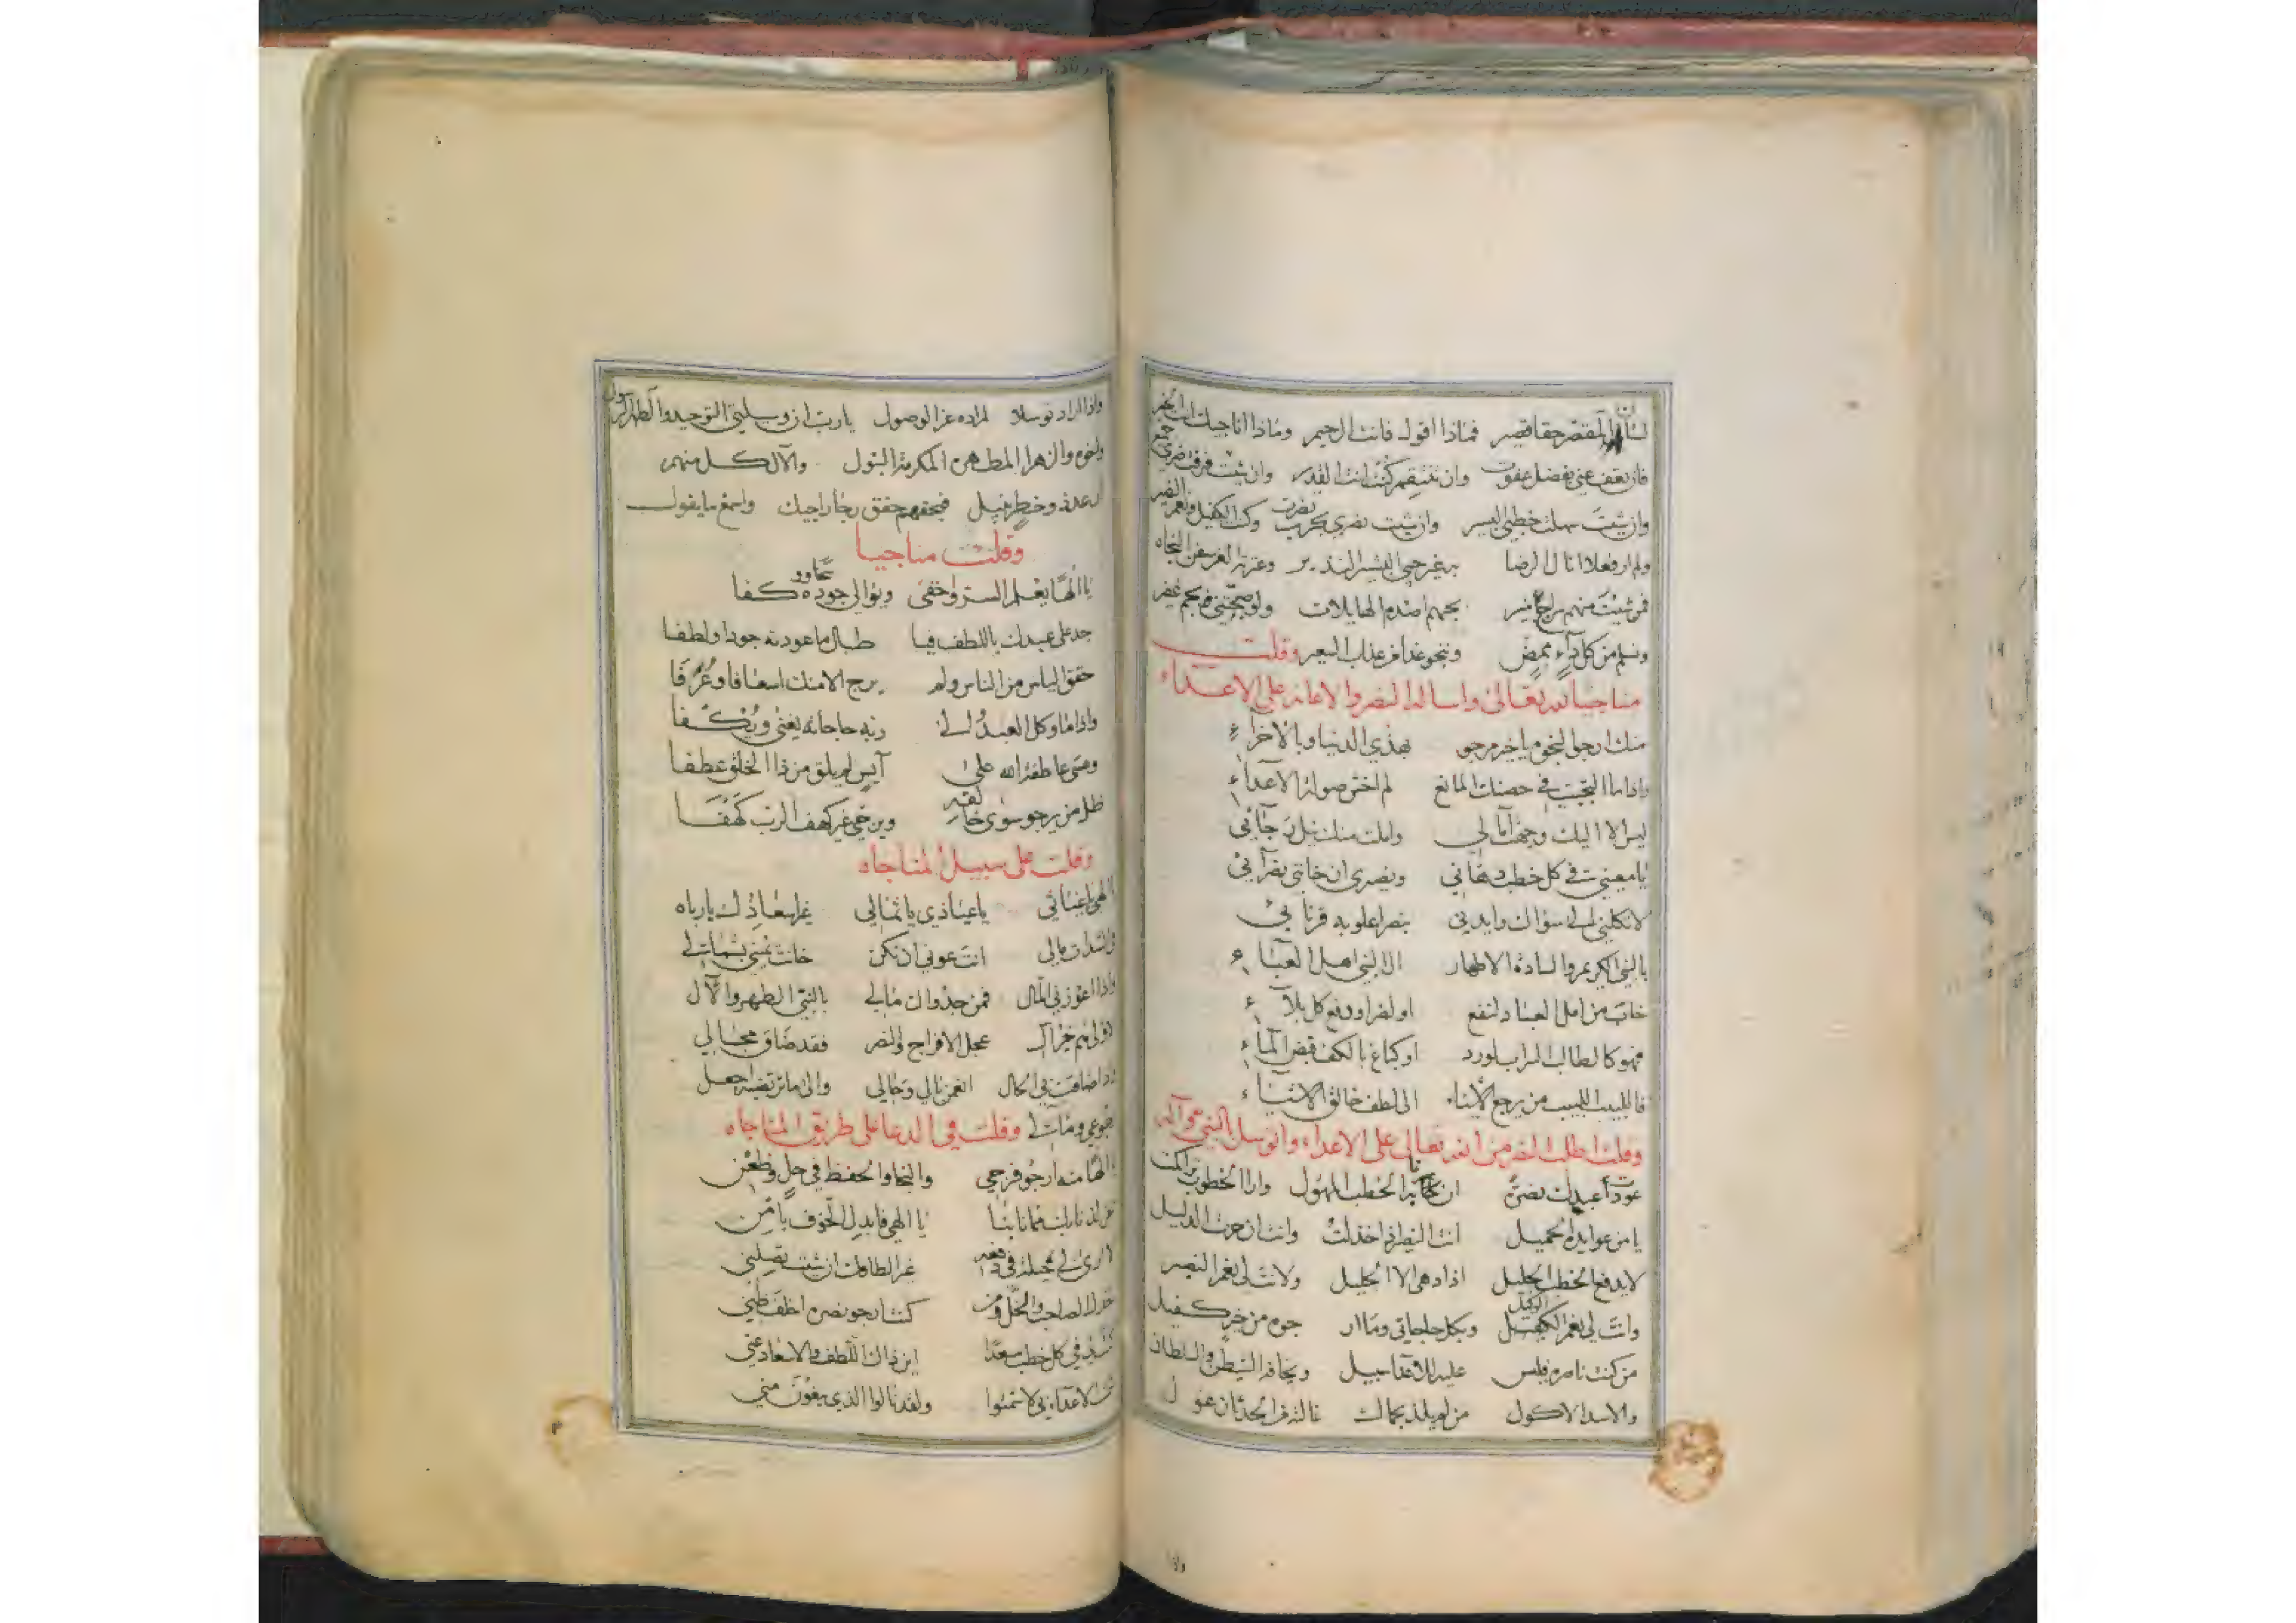 المقصر حقا قصير فماذا اقول فانت الرحيم وماذا اناجيك انت الخبير
فان تعف عني بفضل عفوت وان تنتقم كنت انت القدير وان شئت فرقت
وان شئت سهلت خطبي اليسير وان شئت نصري بحرب نصرت وكنت الكفيل ونعم النصير
ولم ار فعلا انال الرضا به غير حبي البشير النذير وعترته الغر سفن النجاه
فمن شئت منهم بحبهم اصدم الهايلات
ونسلم من كل داء ممض وننجو غدا من عذاب السعير وقلت
مناجيا لله تعالى واساله النصر والاعانه على الاعداء
منك ارجو النجوم يا خير مرجو بهذي الدنيا وبالاخراء
واذا ما التجيت في حصنك المانع لم اخش صولة الاعداء
ليس الا اليك وجهت آمالي واملت منك نيل رجائي
يا معيني في كل خطب دهاني ونصيري ان خانني نصرآئي
لا تكلني الى سؤالك وايدني بنصر اعلو به قرنائي
بالنبي الكريم والسادة الاطهار ال النبي اهل العباء
خاب من امل العباد لنفع او لضر او دفع كل بلاء
فهو كالطالب السراب لورد او كباغ بالكف قبض الماء
فاللبيب اللبيب من يرجع الاشياء الى لطف خالق الاشياء
وقلت اطلب النصر من الله تعالى على الاعداء واتوسل بالنبي وآله
عودت عبدك نصره ان الخطب المهول وارا الخطوب تراكمت
يا من عوايده الجميل انت النصير اذا خذلت وانت ان حرت الدليل
لا يدفع الخطب الجليل اذا دهى الا الجليل ولانت لي نعم النصير
وانت لي نعم الوكيل وبكل حاجاتي وما ارجوه من خير كفيل
من كنت ناصره فليس عليه للاعدا سبيل ويخافه الشيطن والسلطان
والاسد الاكول من لم يلذ بحماك غالته من الحدثان غول
واذا
واذا اراد توسلا لمراده عز الوصول يا رب ان وسيلتي التوحيد والطهر الرسول
واخوه والزهرا المطهرة المكرمة البتول والآل كل منهم
وخطر نبيل فبحقهم حقق رجا راجيك واسمع ما يقول
وقلت مناجيا
يا الها يعلم السر واخفى ويوالي جوده
جد على عبدك باللطف فيا طال ما عودته جودا ولطفا
حقق الياس من الناس ولم يرج الا منك اسعافا وعرفا
واذا ما وكل العبد الى ربه حاجاته يغنى ويكفا
ومتى عاطفة الله على آيس لم يلق من ذا الخلق عطفا
ظل من يرجو سوى خالقه ويرجي غير كهف الرب كهفا
وقلت على سبيل المناجاه
الهي يا غياثي يا عياذي يا ثمالي غير اسعاذك يا رباه
انت عوني ان تكن خانت يميني بشمالي
واذا اعوزني المال فمن جدواك مالي بالنبي الطهر والآل
عجل الافراج والنصر فقد ضاق مجالي
ضاقت بي الحال انعمن بالي وحالي والى ما ترتضيه اجعل
رجوعي ومآلي وقلت في الدعا على طريق المناجاه
الها منه ارجو فرجي والنجا والحفظ في حل وظعن
يا الهي فابدل الخوف بامن
غير الطافك ان شئت تصلني
كنت ارجو نصره اخلف ظني
في كل خطب مسعدا اين ذاك اللطف والاسعاد عني
الاعداء بي لا شمتوا ولقد نالوا الذي يبغون مني